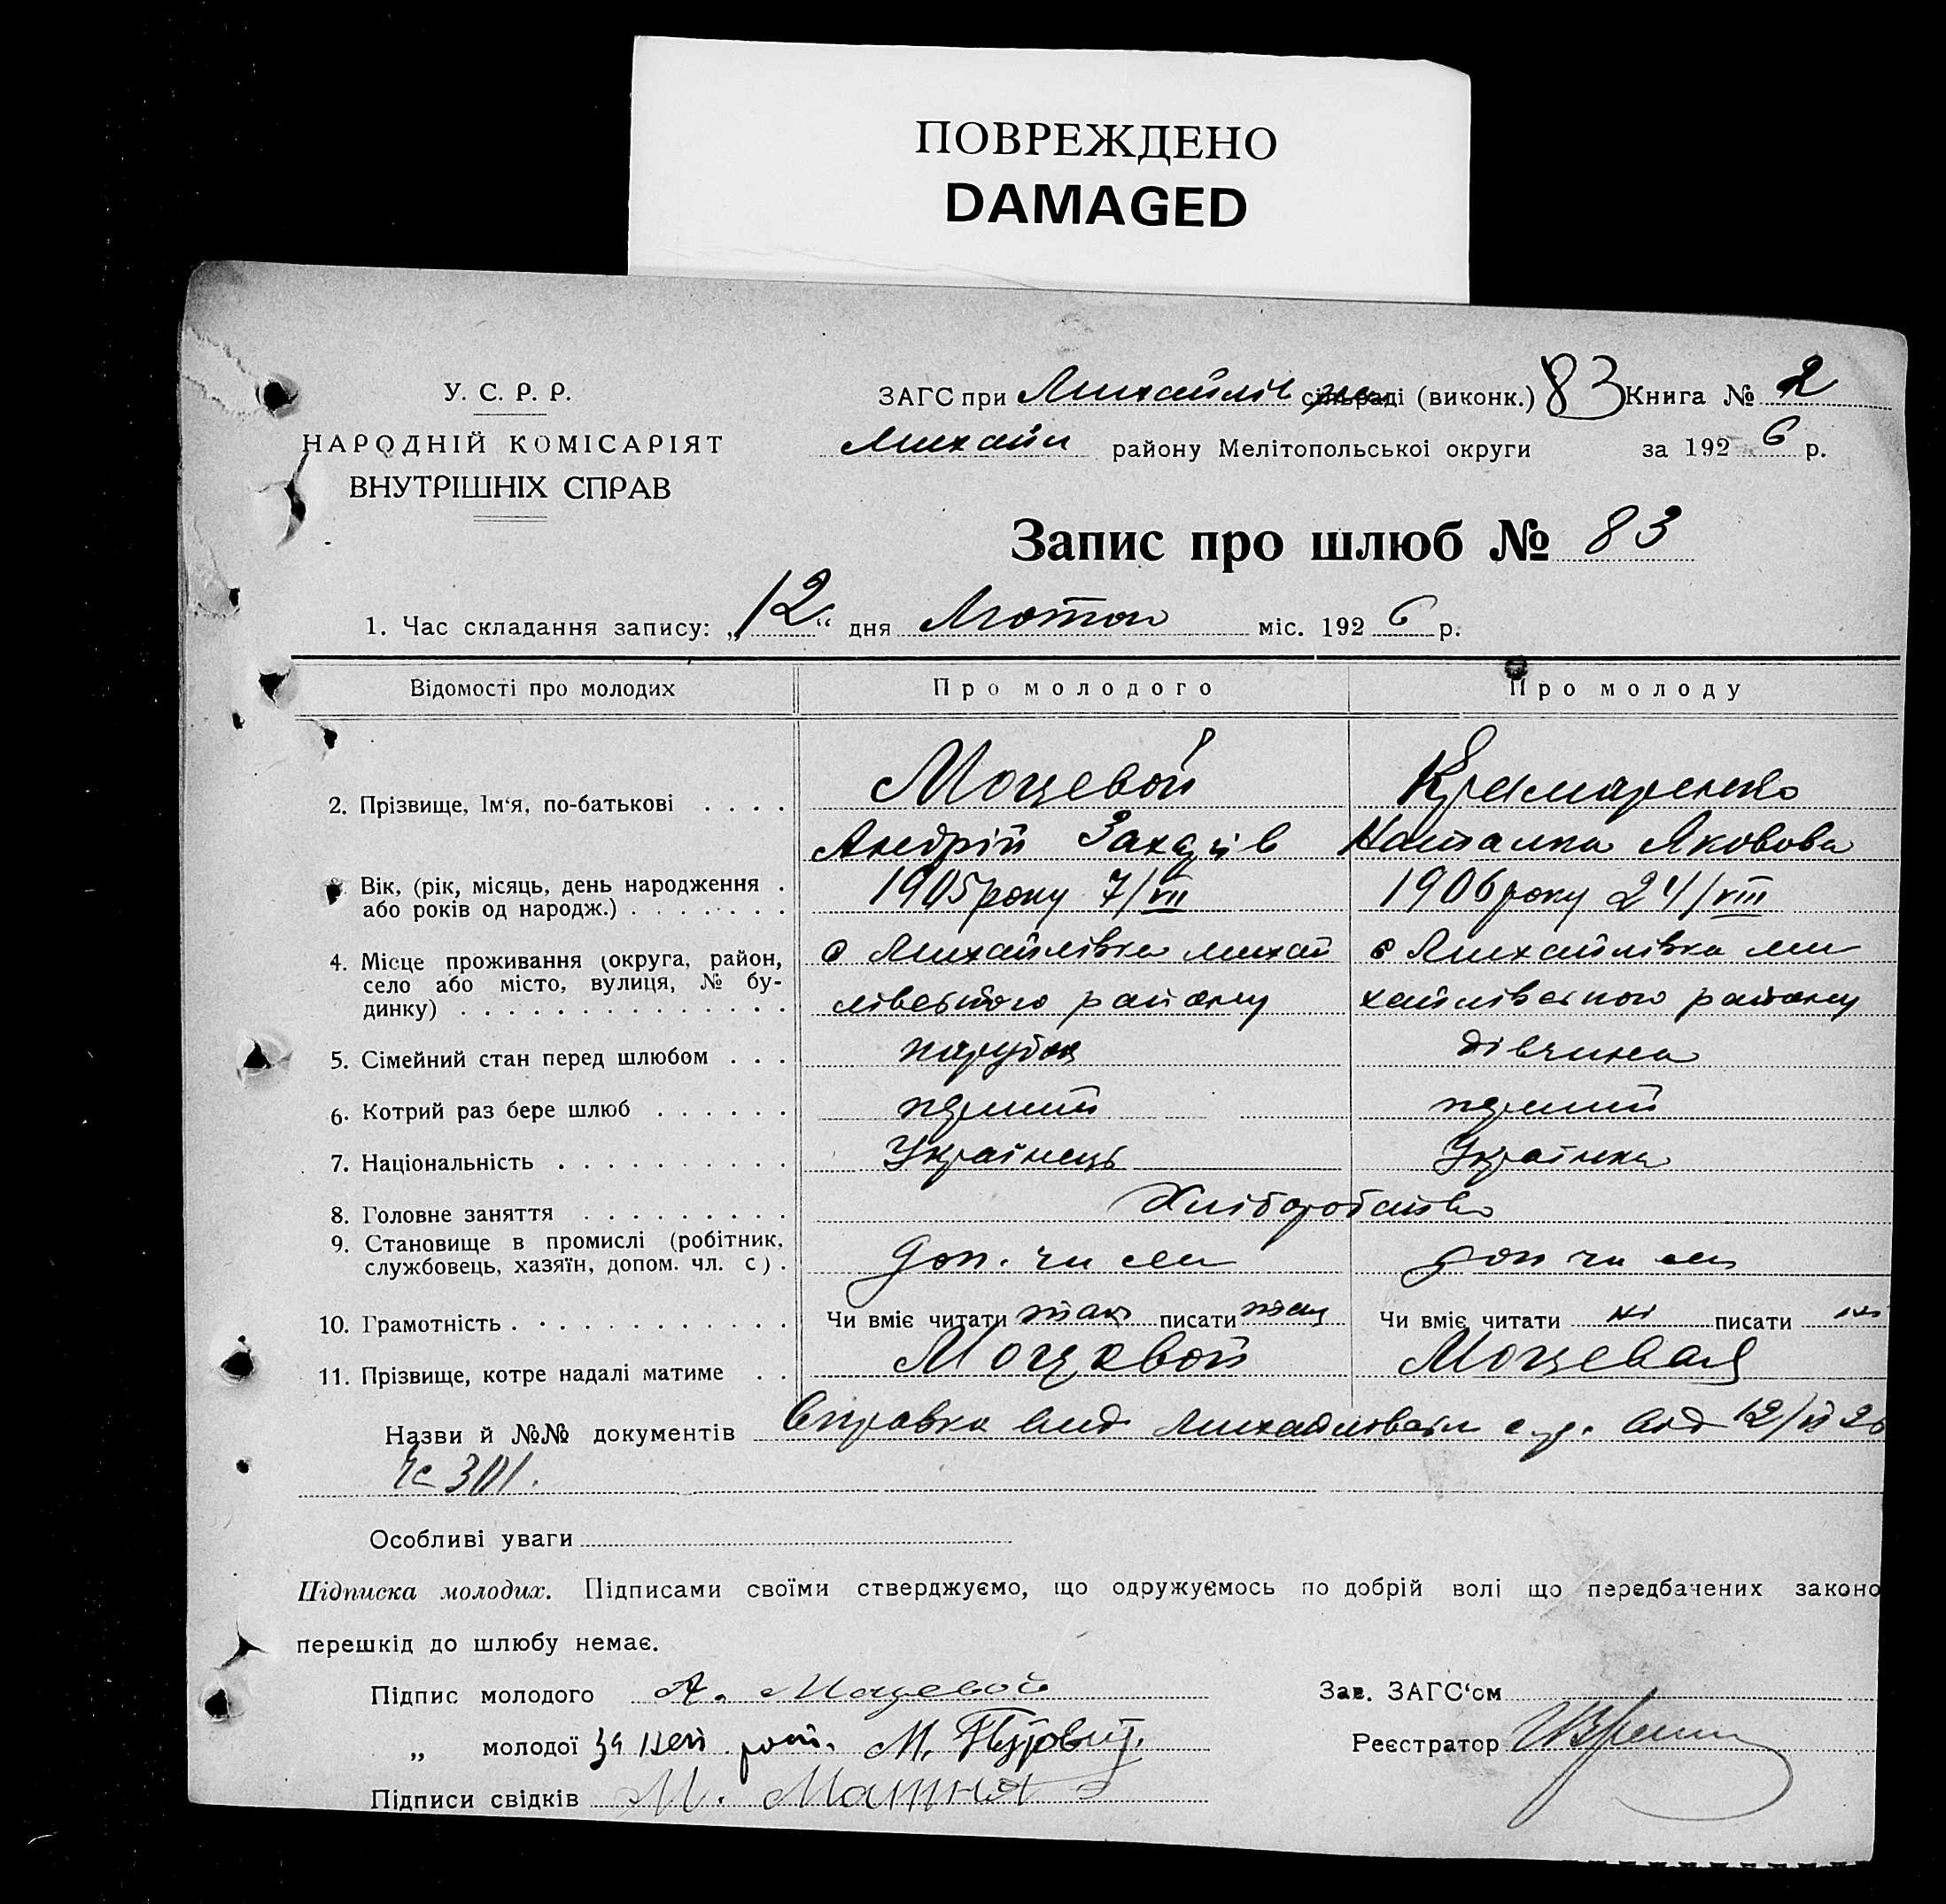 ПОВРЕЖДЕНО
DAMAGED
У. С. Р. Р.
НАРОДНІЙ КОМІСАРІЯТ
ВНУТРІШНІХ СПРАВ
ЗАГС при Михайлів сільраді (виконк.) 83 Книга № 2
Михайл району Мелітопольської округи за 1926 р.
Запис про шлюб № 83
1. Час складання запису: „12“ дня Лютого міс. 1926 р.
Відомості про молодих Про молодого Про молоду
2. Прізвище, Ім‘я, по-батькові . . . . Моцевой Крамаренко
Андрій Наталка Яковова
3. Вік, (рік, місяць, день народження . 1905 року 7/VII 1906 року 24/VIII
або років од народж.) . . . . . . .
4. Місце проживання (округа, район, с Михайлівка михай с Михайлівка ми
село або місто, вулиця, № бу-
динку) . . . . . . . . . . . . . . лівського району хайлівського району
5. Сімейний стан перед шлюбом . . . парубок дівчина
6. Котрий раз бере шлюб . . . . . . перший перший
7. Національність . . . . . . . . . . Українець Українка
8. Головне заняття . . . . . . . . . Хліборобство
9. Становище в промислі (робітник,
службовець, хазяїн, допом. чл. с) . доп. чл см доп чл см
10. Грамотність . . . . . . . . . . . . Чи вміє читати так писати так Чи вміє читати ні писати ні
11. Прізвище, котре надалі матиме . . Моцевой Моцевая
Назви й №№ документів Справка вид Михайлівськ с.р. від 12/II 26
№ 301.
Особливі уваги
Підписка молодих. Підписами своїми стверджуємо, що одружуємось по добрій волі що передбачених законо
перешкід до шлюбу немає.
Підпис молодого А. Моцевой Зав. ЗАГС‘ом
„ молодої за неї М. Реєстратор
Підписи свідків М.